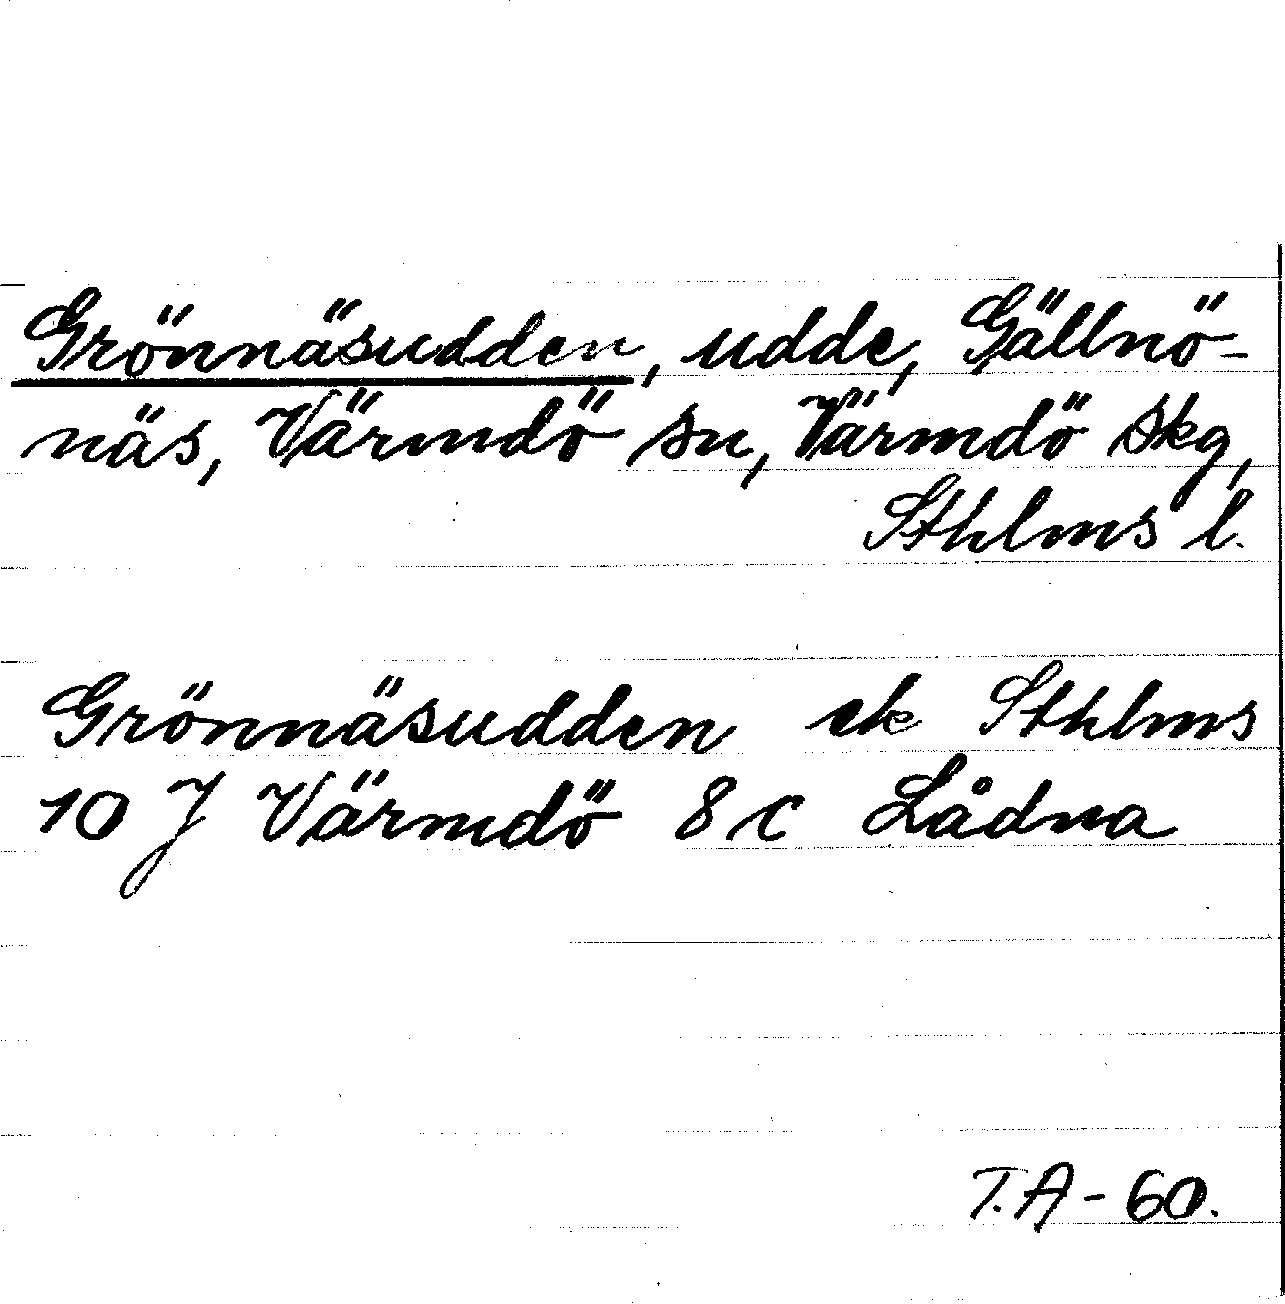 Grönnäsudden, udde, Gällnö-
näs, Värmdö sn, Värmdö skg,
Sthlms l.
Grönnäsudden ek Sthlms
10 J Värmdö 8 c Lådna
T.A-60.